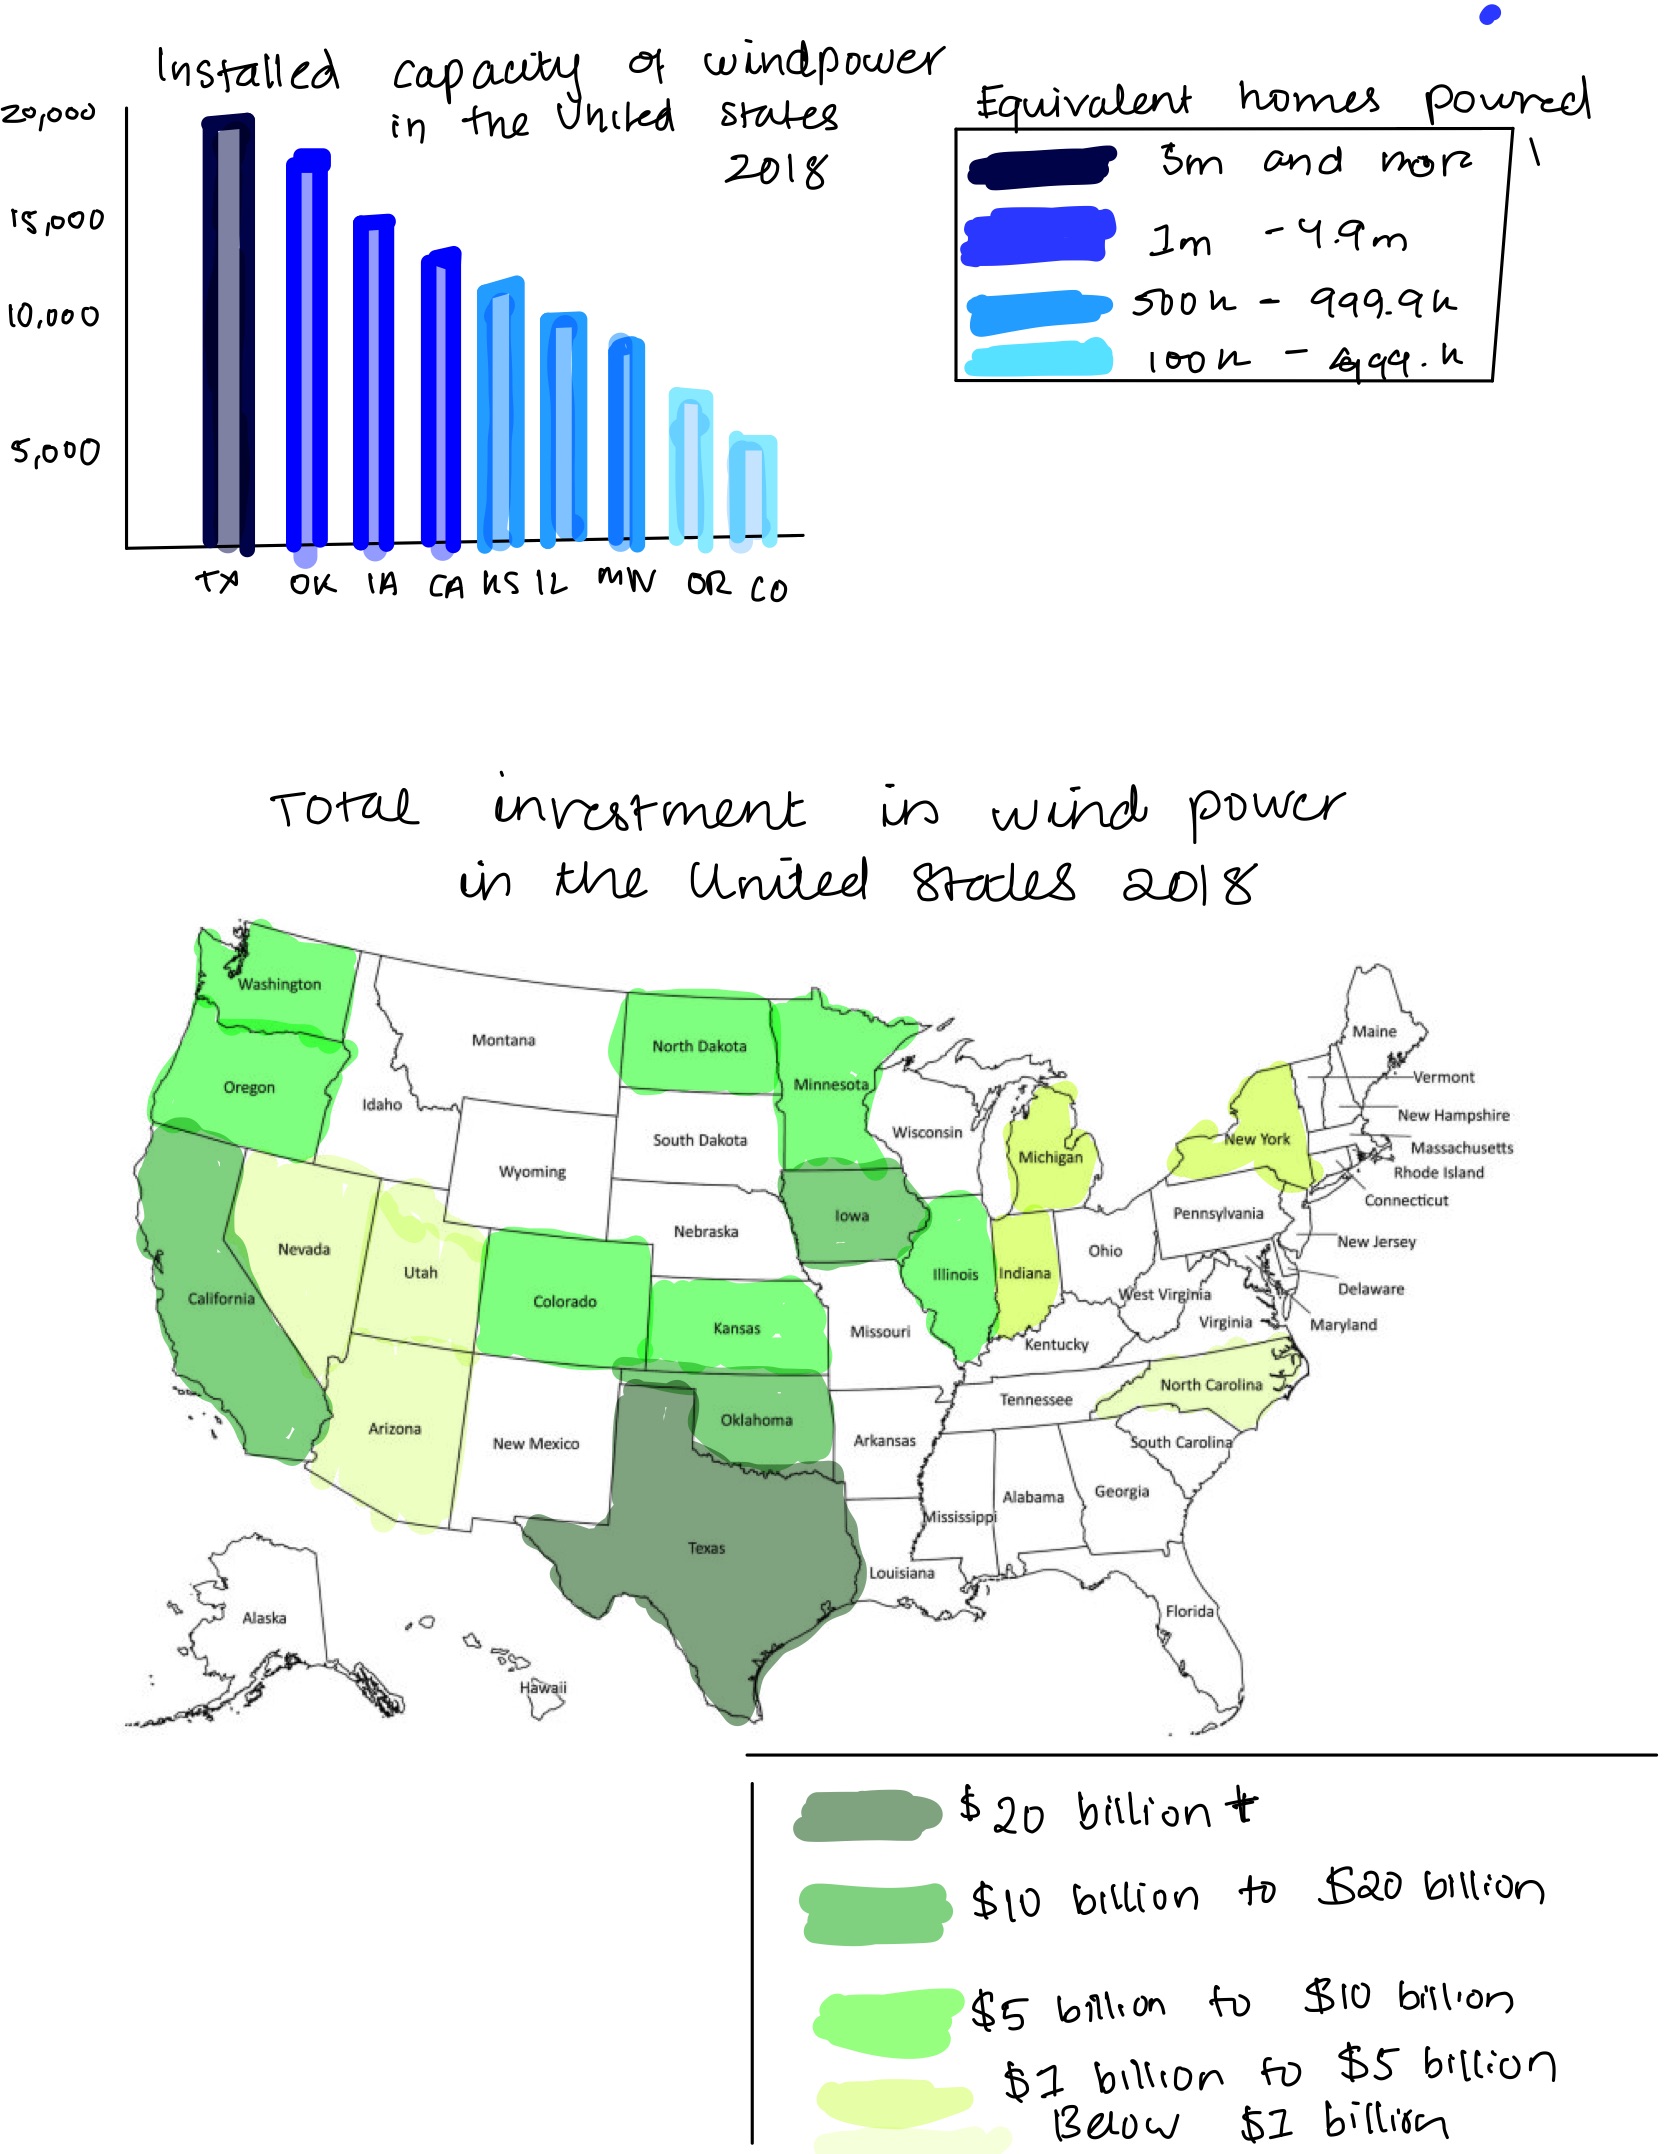 Installed capacity of windpower
in the United states
2018
20,000
15,000
10,000
5,000
TX OK IA CA KS IL MN OR CO
Equivalent homes powered
5m and more
1m - 4.9m
500k - 999.9k
100k - 499.k
Total investment in wind power
in the United States 2018
Washington
Oregon
California
Nevada
Idaho
Montana
Wyoming
Utah
Arizona
Colorado
New Mexico
North Dakota
South Dakota
Nebraska
Kansas
Oklahoma
Texas
Minnesota
Iowa
Missouri
Arkansas
Louisiana
Wisconsin
Illinois
Michigan
Indiana
Ohio
Kentucky
Tennessee
Mississippi
Alabama
Georgia
Florida
South Carolina
North Carolina
Virginia
West Virginia
Pennsylvania
New York
Maine
Vermont
New Hampshire
Massachusetts
Rhode Island
Connecticut
New Jersey
Delaware
Maryland
Alaska
Hawaii
$20 billion +
$10 billion to $20 billion
$5 billion to $10 billion
$1 billion to $5 billion
Below $1 billion